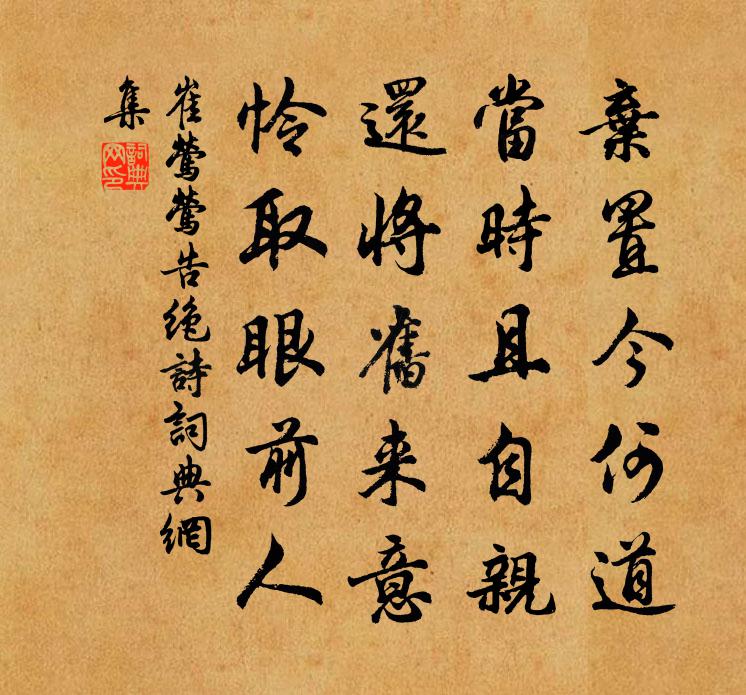 棄置今何道
當時且自親
還將舊来意
怜取眼前人
崔鶯鶯告绝詩詞典網
集
詞典
网印